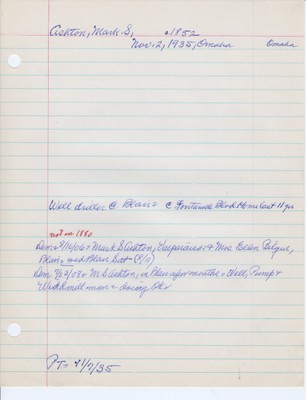 Ashton, Mark S, *1852
Nov. 2, 1935, Omaha Omaha
Well driller @ Blair = @ Fontanelle Blvd Home last 11 yrs
not in 1880
Dem 9/16/06 = Mark S Ashton, Valparaiso + Mrs Ellen
Blair = wed Blair Satt (P/O)
Dem 9/2/08 = M S Ashton, in Blair a few months = Well, Pump &
Windmill man = doing OK
PT = 11/7/35